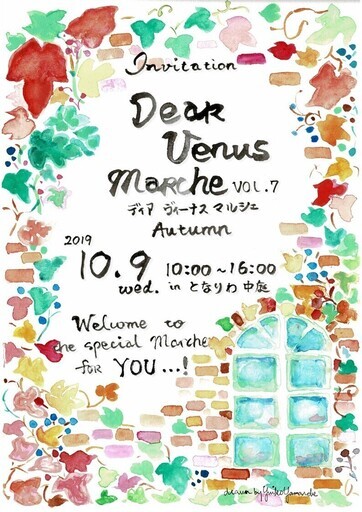 Invitation
Dear
Venus
Marche VOL.7
ディア ヴィーナス マルシェ
Autumn
2019
10.9 10:00~16:00
wed. in となりわ 中庭
Welcome to
the special Marche
for YOU...!
drawn by